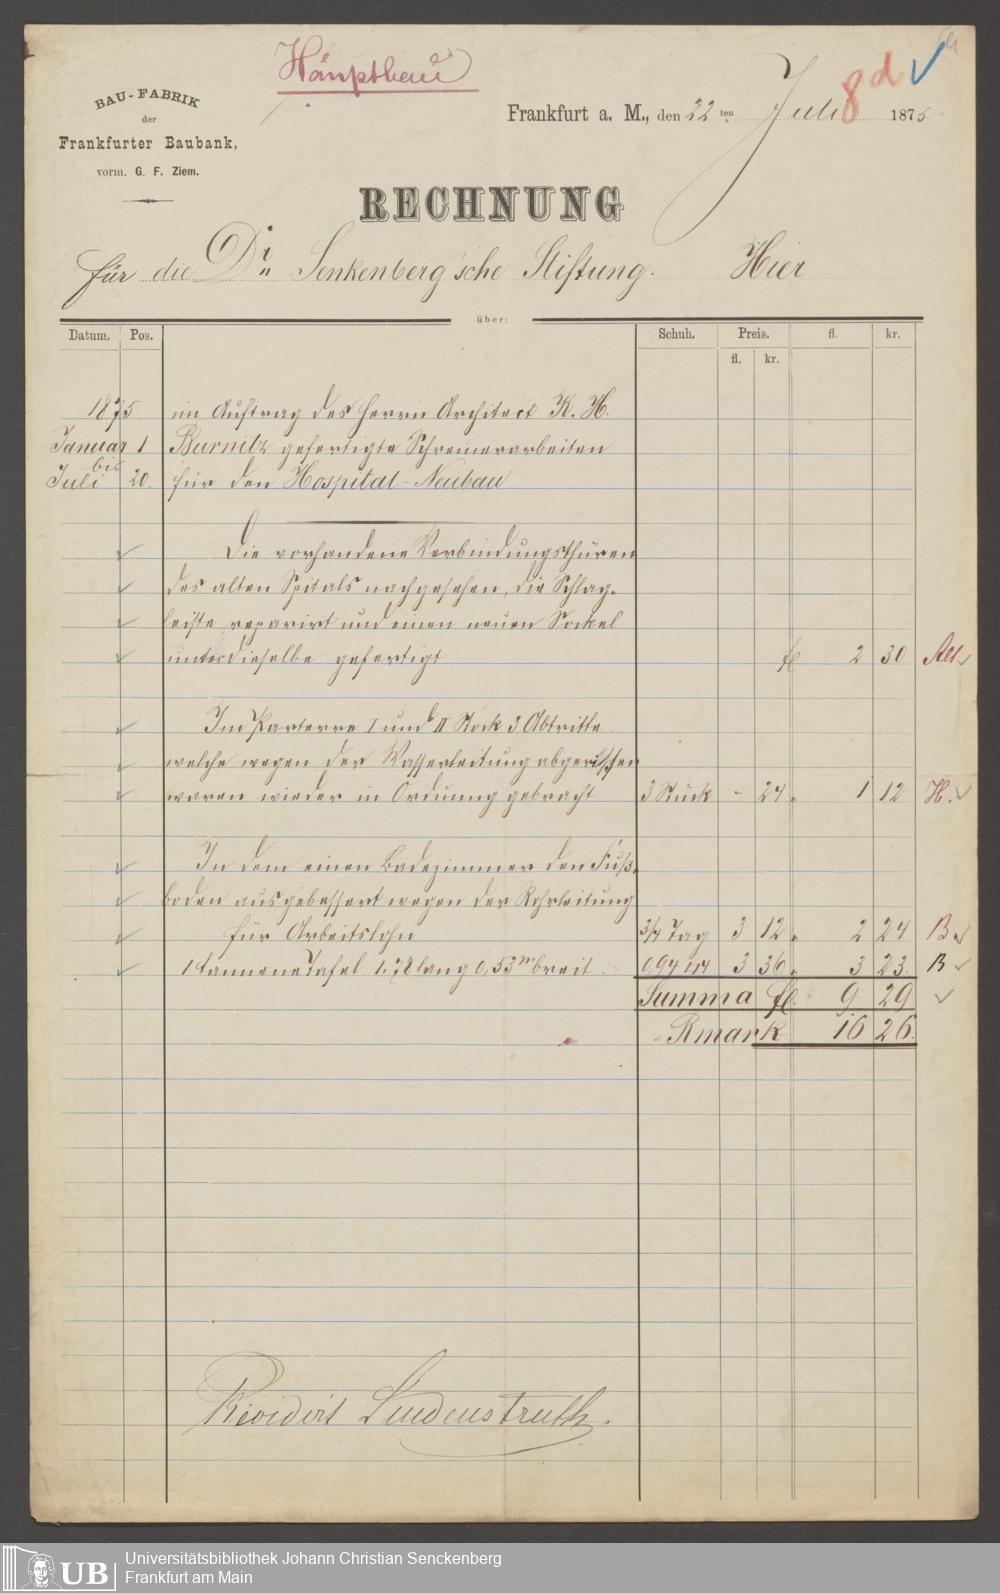 Hauptbau
8 d
BAU-FABRIK
der
Frankfurter Baubank,
vorm. G. F. Ziem.
Frankfurt a. M., den 22 ten Juli 1875
RECHNUNG
für die Dr. Senkenberg'sche Stiftung. Hier
über:
Datum. Pos. Schuh. Preis. fl. kr.
fl. kr.
1875 im Auftrag des Herrn Architect K. H.
Januar 1 Burnitz gefertigte Schreinerarbeiten
bis
Juli 20. für den Hospital-Neubau
Die vorhandene Verbindungsthüren
des alten Spitals nachgesehen, die Schlag-
leiste reparirt und einen neuen Sockel
unter dieselbe gefertigt fl 2 30
Im Parterre I und II Stock 3 Abtritte
welche wegen der Wasserleitung abgerissen
waren wieder in Ordnung gebracht 3 Stück - 24 " 1 12 H.
In dem einen Badezimmer den Fuß-
boden ausgebessert wegen der Rohrleitung
für Arbeitslohn 3/4 Tag 3 12 " 2 24 B.
1 tannene Tafel 1.78 lang 0,53 m breit 0,94 3 36 " 3 23. B
Summa fl. 9 29
Rmark 16 26.
Revidirt Lindenstruth.
UB
Universitätsbibliothek Johann Christian Senckenberg
Frankfurt am Main